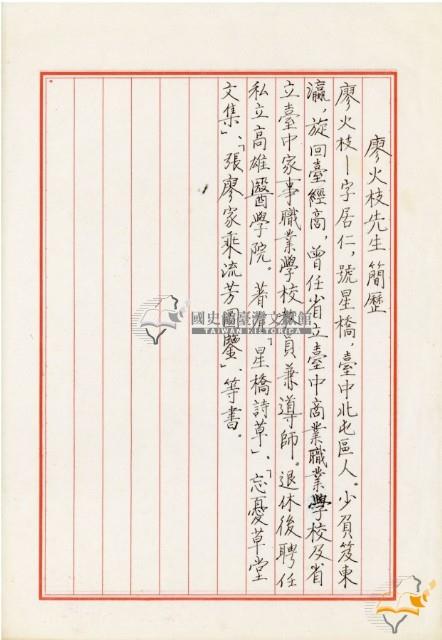 廖火枝先生簡歷
廖火枝—字居仁,號星橋,臺中北屯區人。少負笈東
瀛,旋回臺經商,曾任省立臺中商業職業學校及省
立臺中家事職業學校教員兼導師。退休後聘任
私立高雄醫學院。著有「星橋詩草」、「忘憂草堂
文集」、「張廖家乘流芳圖鑒」、等書。
國史館臺灣文獻館
TAIWAN HISTORICA